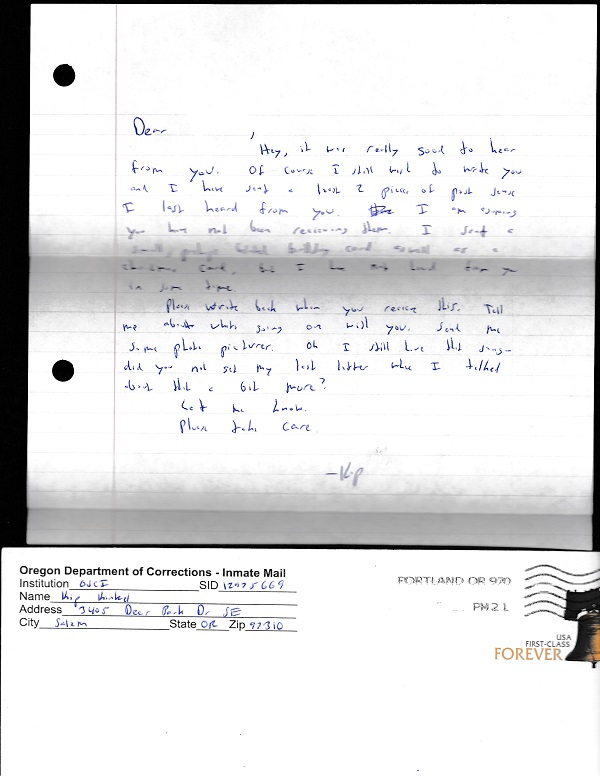 Dear ,
Hey, it was really good to hear
from you. Of course I still want to write you
and I have sent a least 2 pieces of post since
I last heard from you. I am assuming
you have not been receiving them. I sent a
birthday card aswell as a
christmas card, but I have not heard from you
in some time.
Please write back when you receive this. Tell
me about whats going on with you. Send me
some photo pictures. Oh I still love that song-
did you not get my last letter where I talked
about that a bit more?
Let me know.
Please take care
-Kip
Oregon Department of Corrections - Inmate Mail
Institution OSCI SID 12975669
Name Kip Kinkel
Address 3405 Deer Park Dr SE
City Salem State OR Zip 97310
PORTLAND OR 970
PM 2 L
USA
FIRST-CLASS
FOREVER